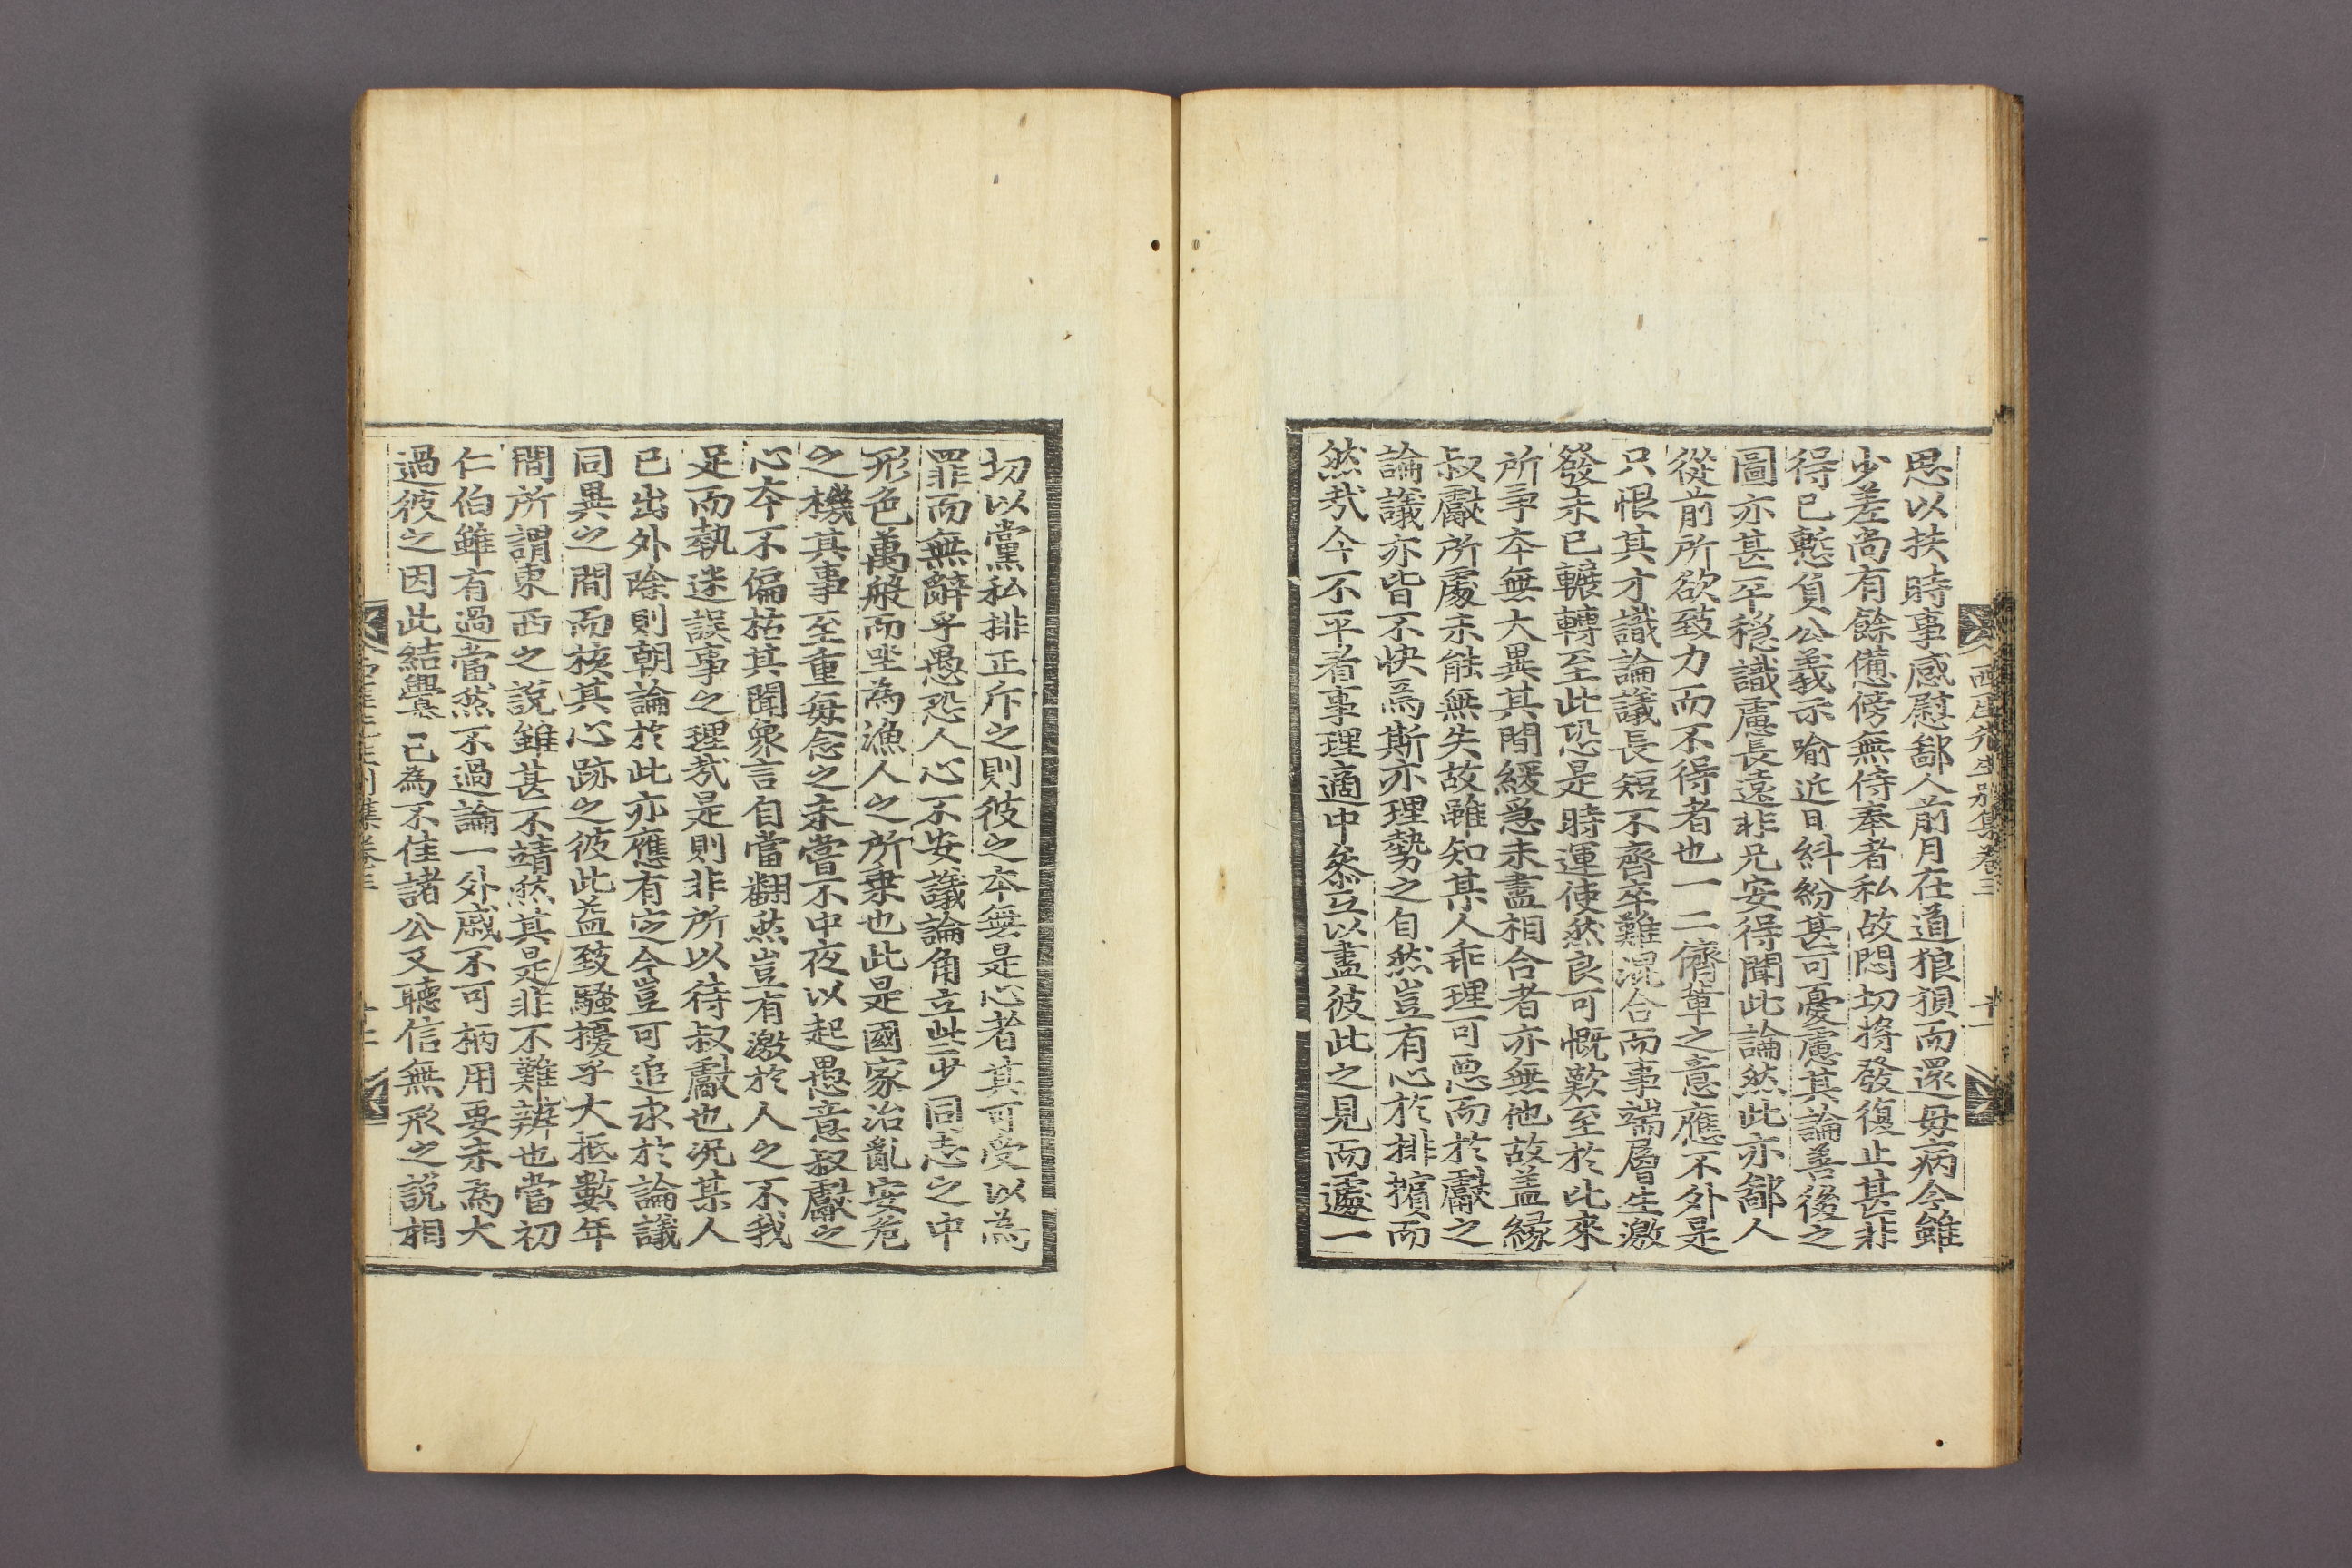 西厓先生別集卷三
十一
思以扶時事感慰鄙人前月在道狼狽而還毋病今雖
少差尚有餘憊傍無侍奉者私故悶切將發復止甚非
得已慙負公義示喻近日紏紛甚可憂慮其論善後之
圖亦甚平穩識慮長遠非兄安得聞此論然此亦鄙人
從前所欲致力而不得者也一二儕軰之意應不外是
只恨其才識論議長短不齊卒難混合而事端層生激
發未已輾轉至此恐是時運使然良可慨歎至於此來
所爭本無大異其間緩急未盡相合者亦無他故盖縁
叔獻所處未能無失故雖知某人乖理可惡而於獻之
論議亦皆不快焉斯亦理勢之自然豈有心於排擯而
然㢤今不平者事理適中叅互以盡彼此之見而遽一
切以黨私排正斥之則彼之本無是心者其可受以為
罪而無辭乎愚恐人心不安議論角立些少同志之中
形色萬般而坐為漁人之所乗也此是國家治亂安危
之機其事至重每念之未嘗不中夜以起愚意叔獻之
心本不偏枯其聞衆言自當翻然豈有激於人之不我
足而執迷誤事之理㢤是則非所以待叔獻也況某人
已出外除則朝論於此亦應有定今豈可追求於論議
同異之間而核其心跡之彼此益致騷擾乎大抵數年
間所謂東西之說雖甚不靖然其是非不難辨也當初
仁伯雖有過當然不過論一外戚不可柄用要未為大
過彼之因此結釁㒵已為不佳諸公又聽信無形之說相